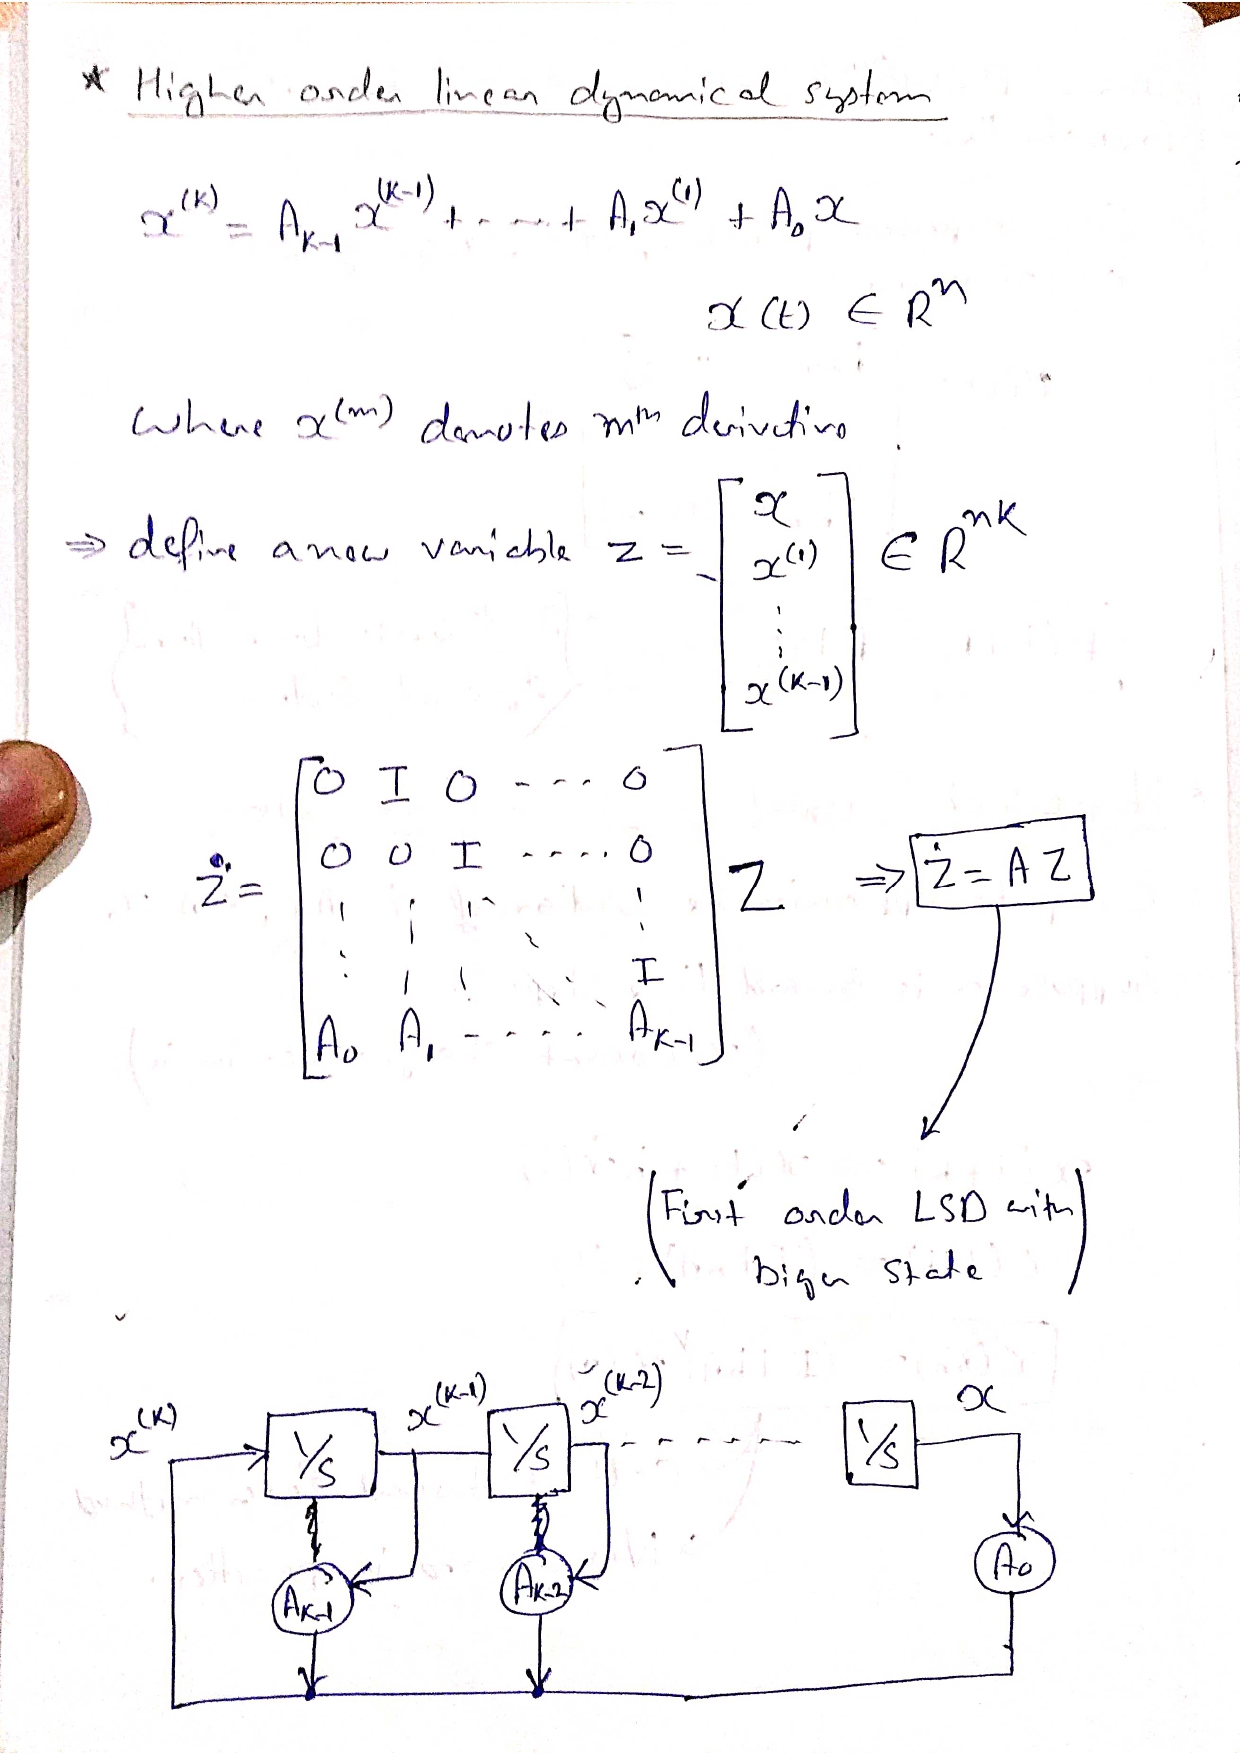 * Higher order linear dynamical system
x^(K) = A_{K-1} x^(K-1) + - - - - + A_1 x^(1) + A_0 x
x(t) ∈ R^n
where x^(m) denotes m^th derivative
⇒ define a new variable z = [ x
x^(1)
⋮
x^(K-1) ] ∈ R^nK
ż = [ 0 I 0 - - - - 0
0 0 I - - - - . 0
⋮ ⋮ ⋱ ⋮
I
A_0 A_1 - - - - . A_{K-1} ] Z ⇒ Ż = A Z
(First order LSD with
biger state)
x^(K) 1/s x^(K-1) 1/s x^(K-2) - - - - - - 1/s x
A_{K-1} A_{K-2} A_0